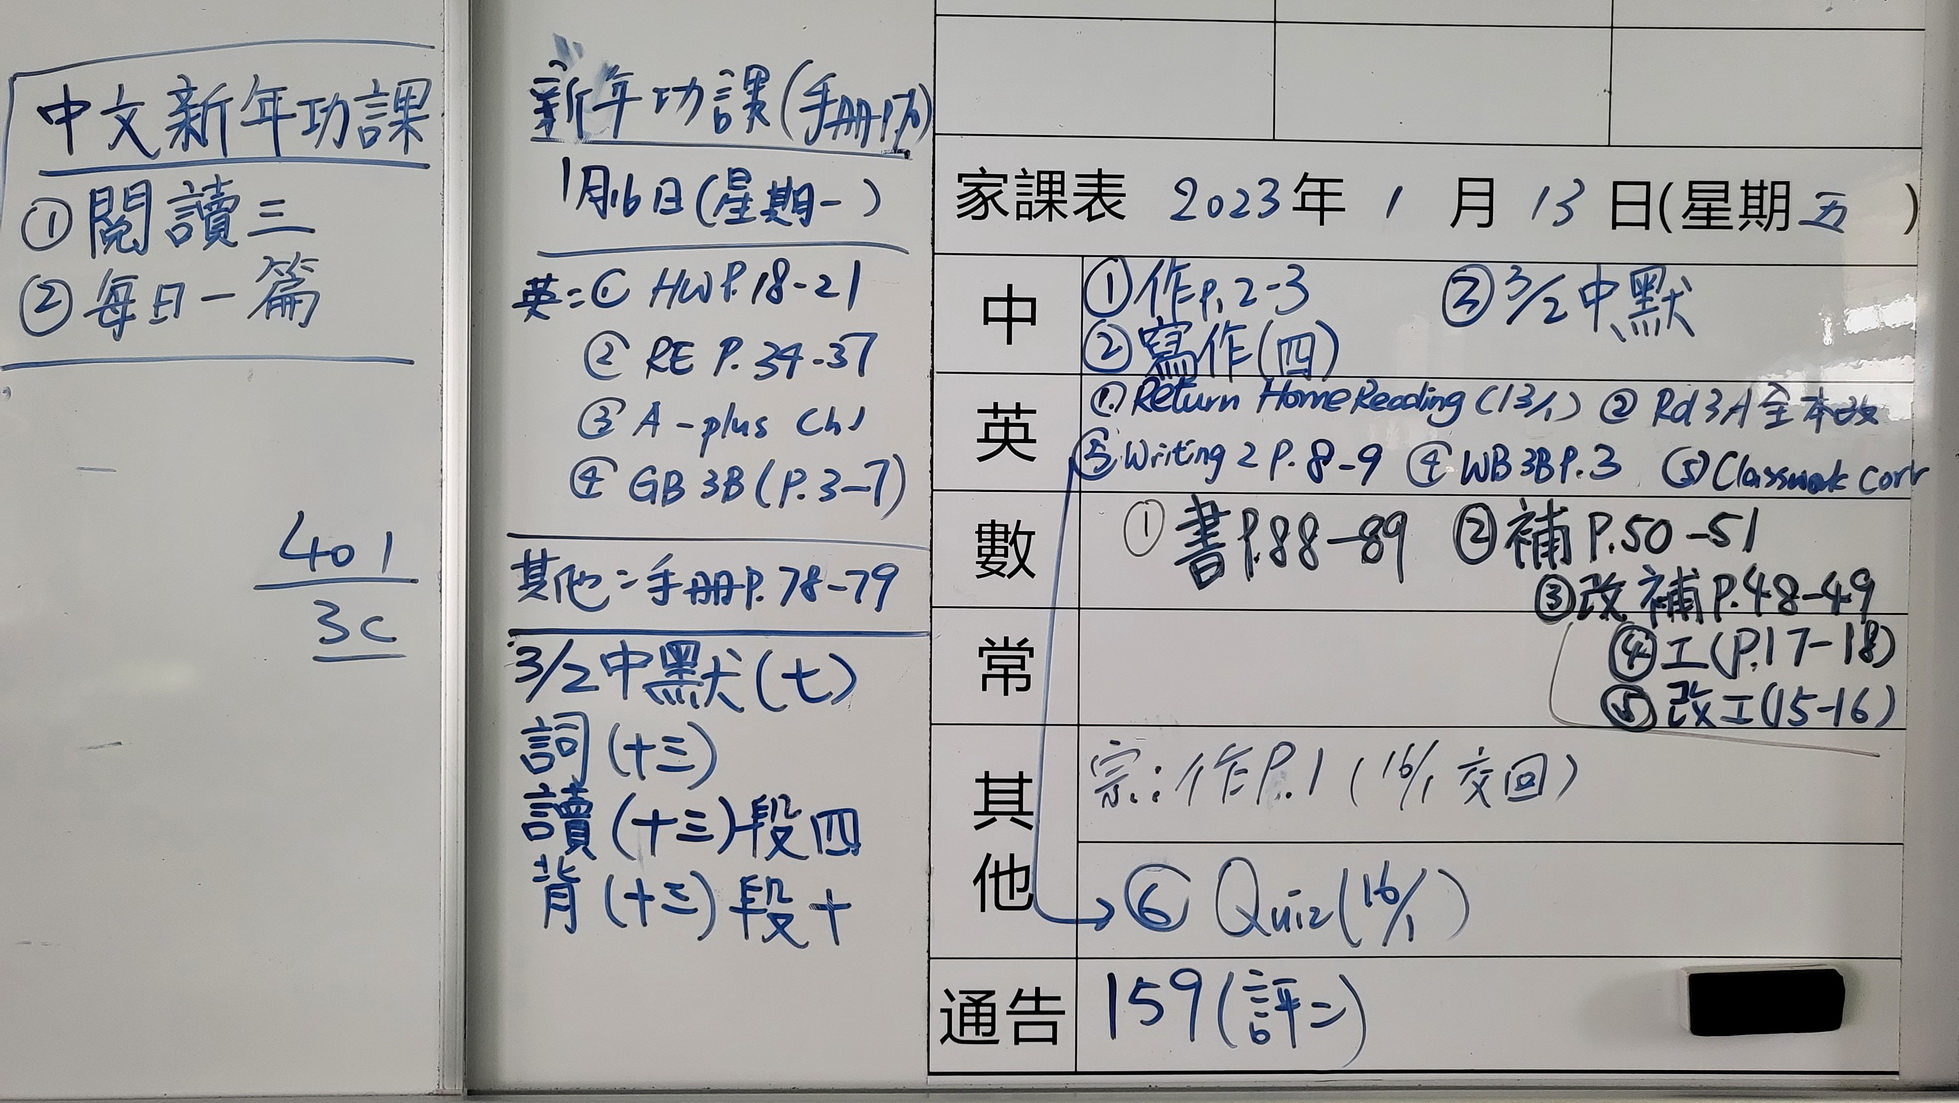 中文新年功課
①閱讀三
②每日一篇
401
3C
新年功課(手冊P.76)
1月16日(星期一)
英:① HW P.18-21
② RE P.34-37
③ A-plus Ch1
④ GB 3B (P.3-7)
其他:手冊P.78-79
3/2中默(七)
詞(十三)
讀(十三)段四
背(十三)段十
家課表 2023年 1 月 13 日(星期五 )
中 ①作P.2-3 ③3/2中默
②寫作(四)
英 ①Return Home Reading (13/1) ② Rd 3A 全本改
③Writing 2 P.8-9 ④WB 3B P.3 ⑤Classwork corr
數 ① 書P.88-89 ②補P.50-51
③改補P.48-49
常 ④工(P.17-18)
⑤改工(15-16)
其他 宗:作P.1 (16/1 交回)
⑥ Quiz(16/1)
通告 159(評二)